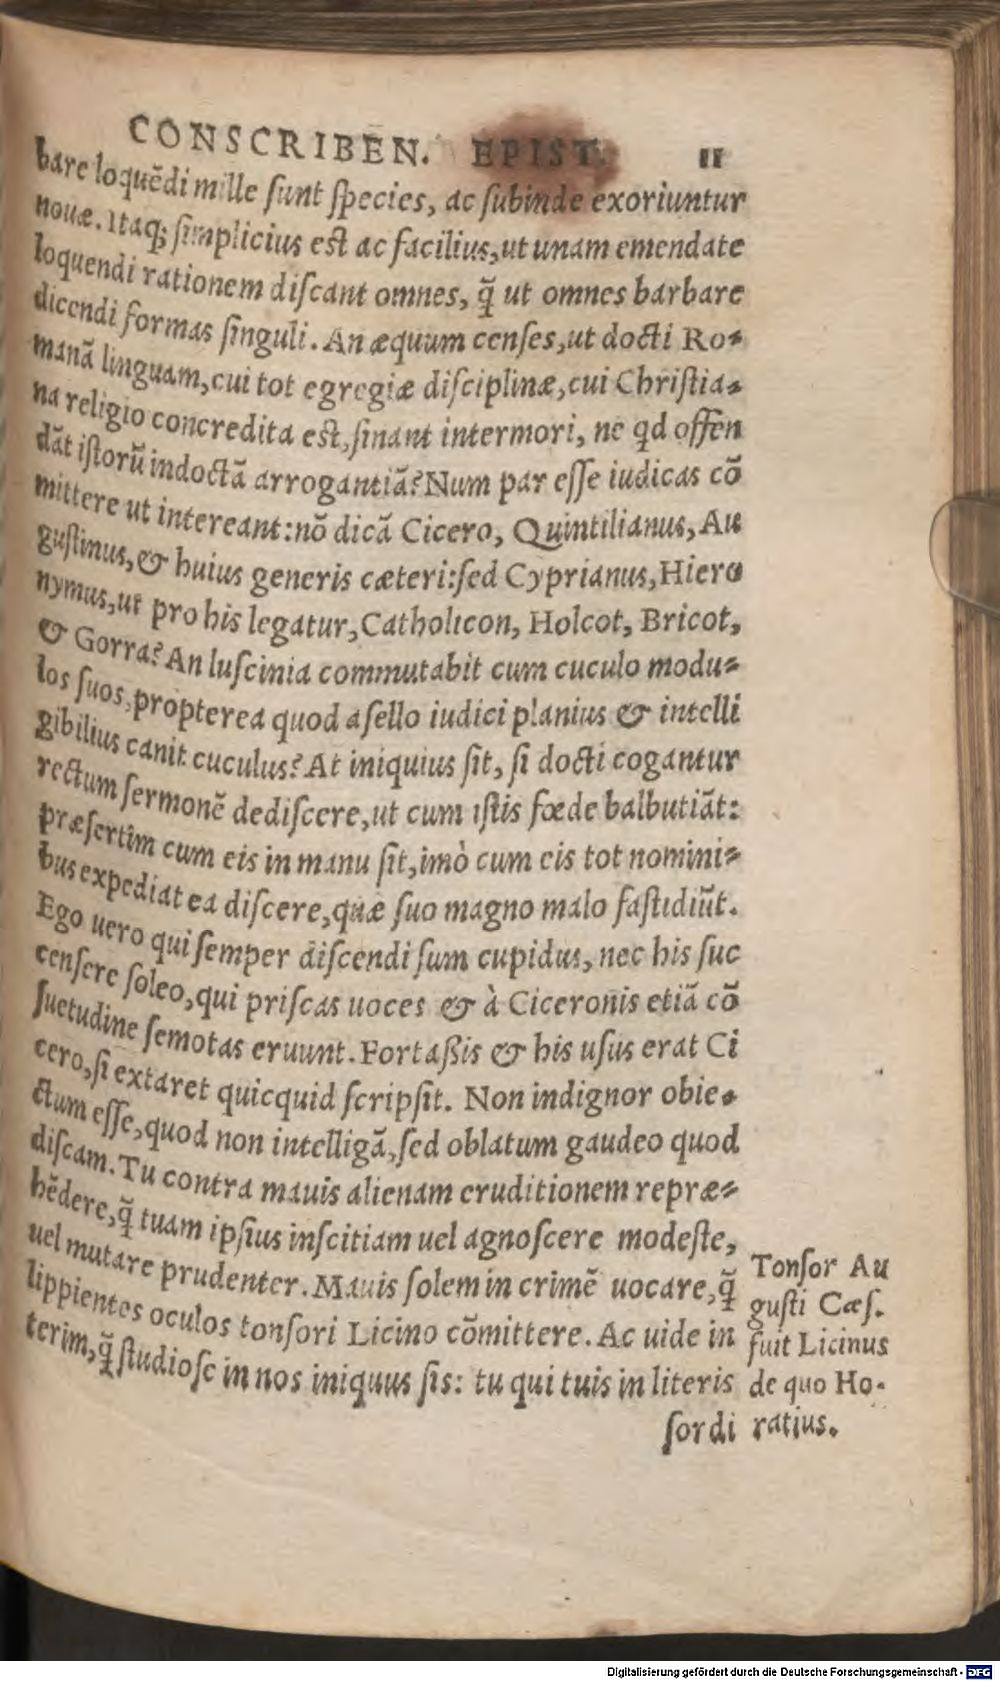 CONSCRIBEN. EPIST. 11
bare loquēdi mille ſunt ſpecies, ac ſubinde exoriuntur
nouæ. Itaq; ſimplicius eſt ac facilius, ut unam emendate
loquendi rationem diſcant omnes, q̃ ut omnes barbare
dicendi formas ſinguli. An æquum cenſes, ut docti Ro-
manā linguam, cui tot egregiæ diſciplinæ, cui Chriſtia-
na religio concredita eſt, ſinant intermori, ne qd offen
dāt iſtorū indoctā arrogantiā? Num par eſſe iudicas cō
mittere ut intereant: nō dicā Cicero, Quintilianus, Au
guſtinus, & huius generis cæteri: ſed Cyprianus, Hiero
nymus, ut pro his legatur, Catholicon, Holcot, Bricot,
& Gorra? An luſcinia commutabit cum cuculo modu-
los ſuos, propterea quod aſello iudici planius & intelli
gibilius canit cuculus? At iniquius ſit, ſi docti cogantur
rectum ſermonē dediſcere, ut cum iſtis fœde balbutiāt:
præſertim cum eis in manu ſit, imò cum eis tot nomini-
bus expediat ea diſcere, quæ ſuo magno malo faſtidiūt.
Ego uero qui ſemper diſcendi ſum cupidus, nec his ſuc
cenſere ſoleo, qui priſcas uoces & à Ciceronis etiā cō
ſuetudine ſemotas eruunt. Fortaßis & his uſus erat Ci
cero, ſi extaret quicquid ſcripſit. Non indignor obie-
ctum eſſe, quod non intelligā, ſed oblatum gaudeo quod
diſcam. Tu contra mauis alienam eruditionem repræ-
hēdere, q̃ tuam ipſius inſcitiam uel agnoſcere modeſte,
uel mutare prudenter. Mauis ſolem in crimē uocare, q̃
lippientes oculos tonſori Licino cōmittere. Ac uide in
terim, q̃ ſtudioſe in nos iniquus ſis: tu qui tuis in literis
ſordi
Tonſor Au
guſti Cæſ.
fuit Licinus
de quo Ho-
ratius.
Digitalisierung gefördert durch die Deutsche Forschungsgemeinschaft - DFG